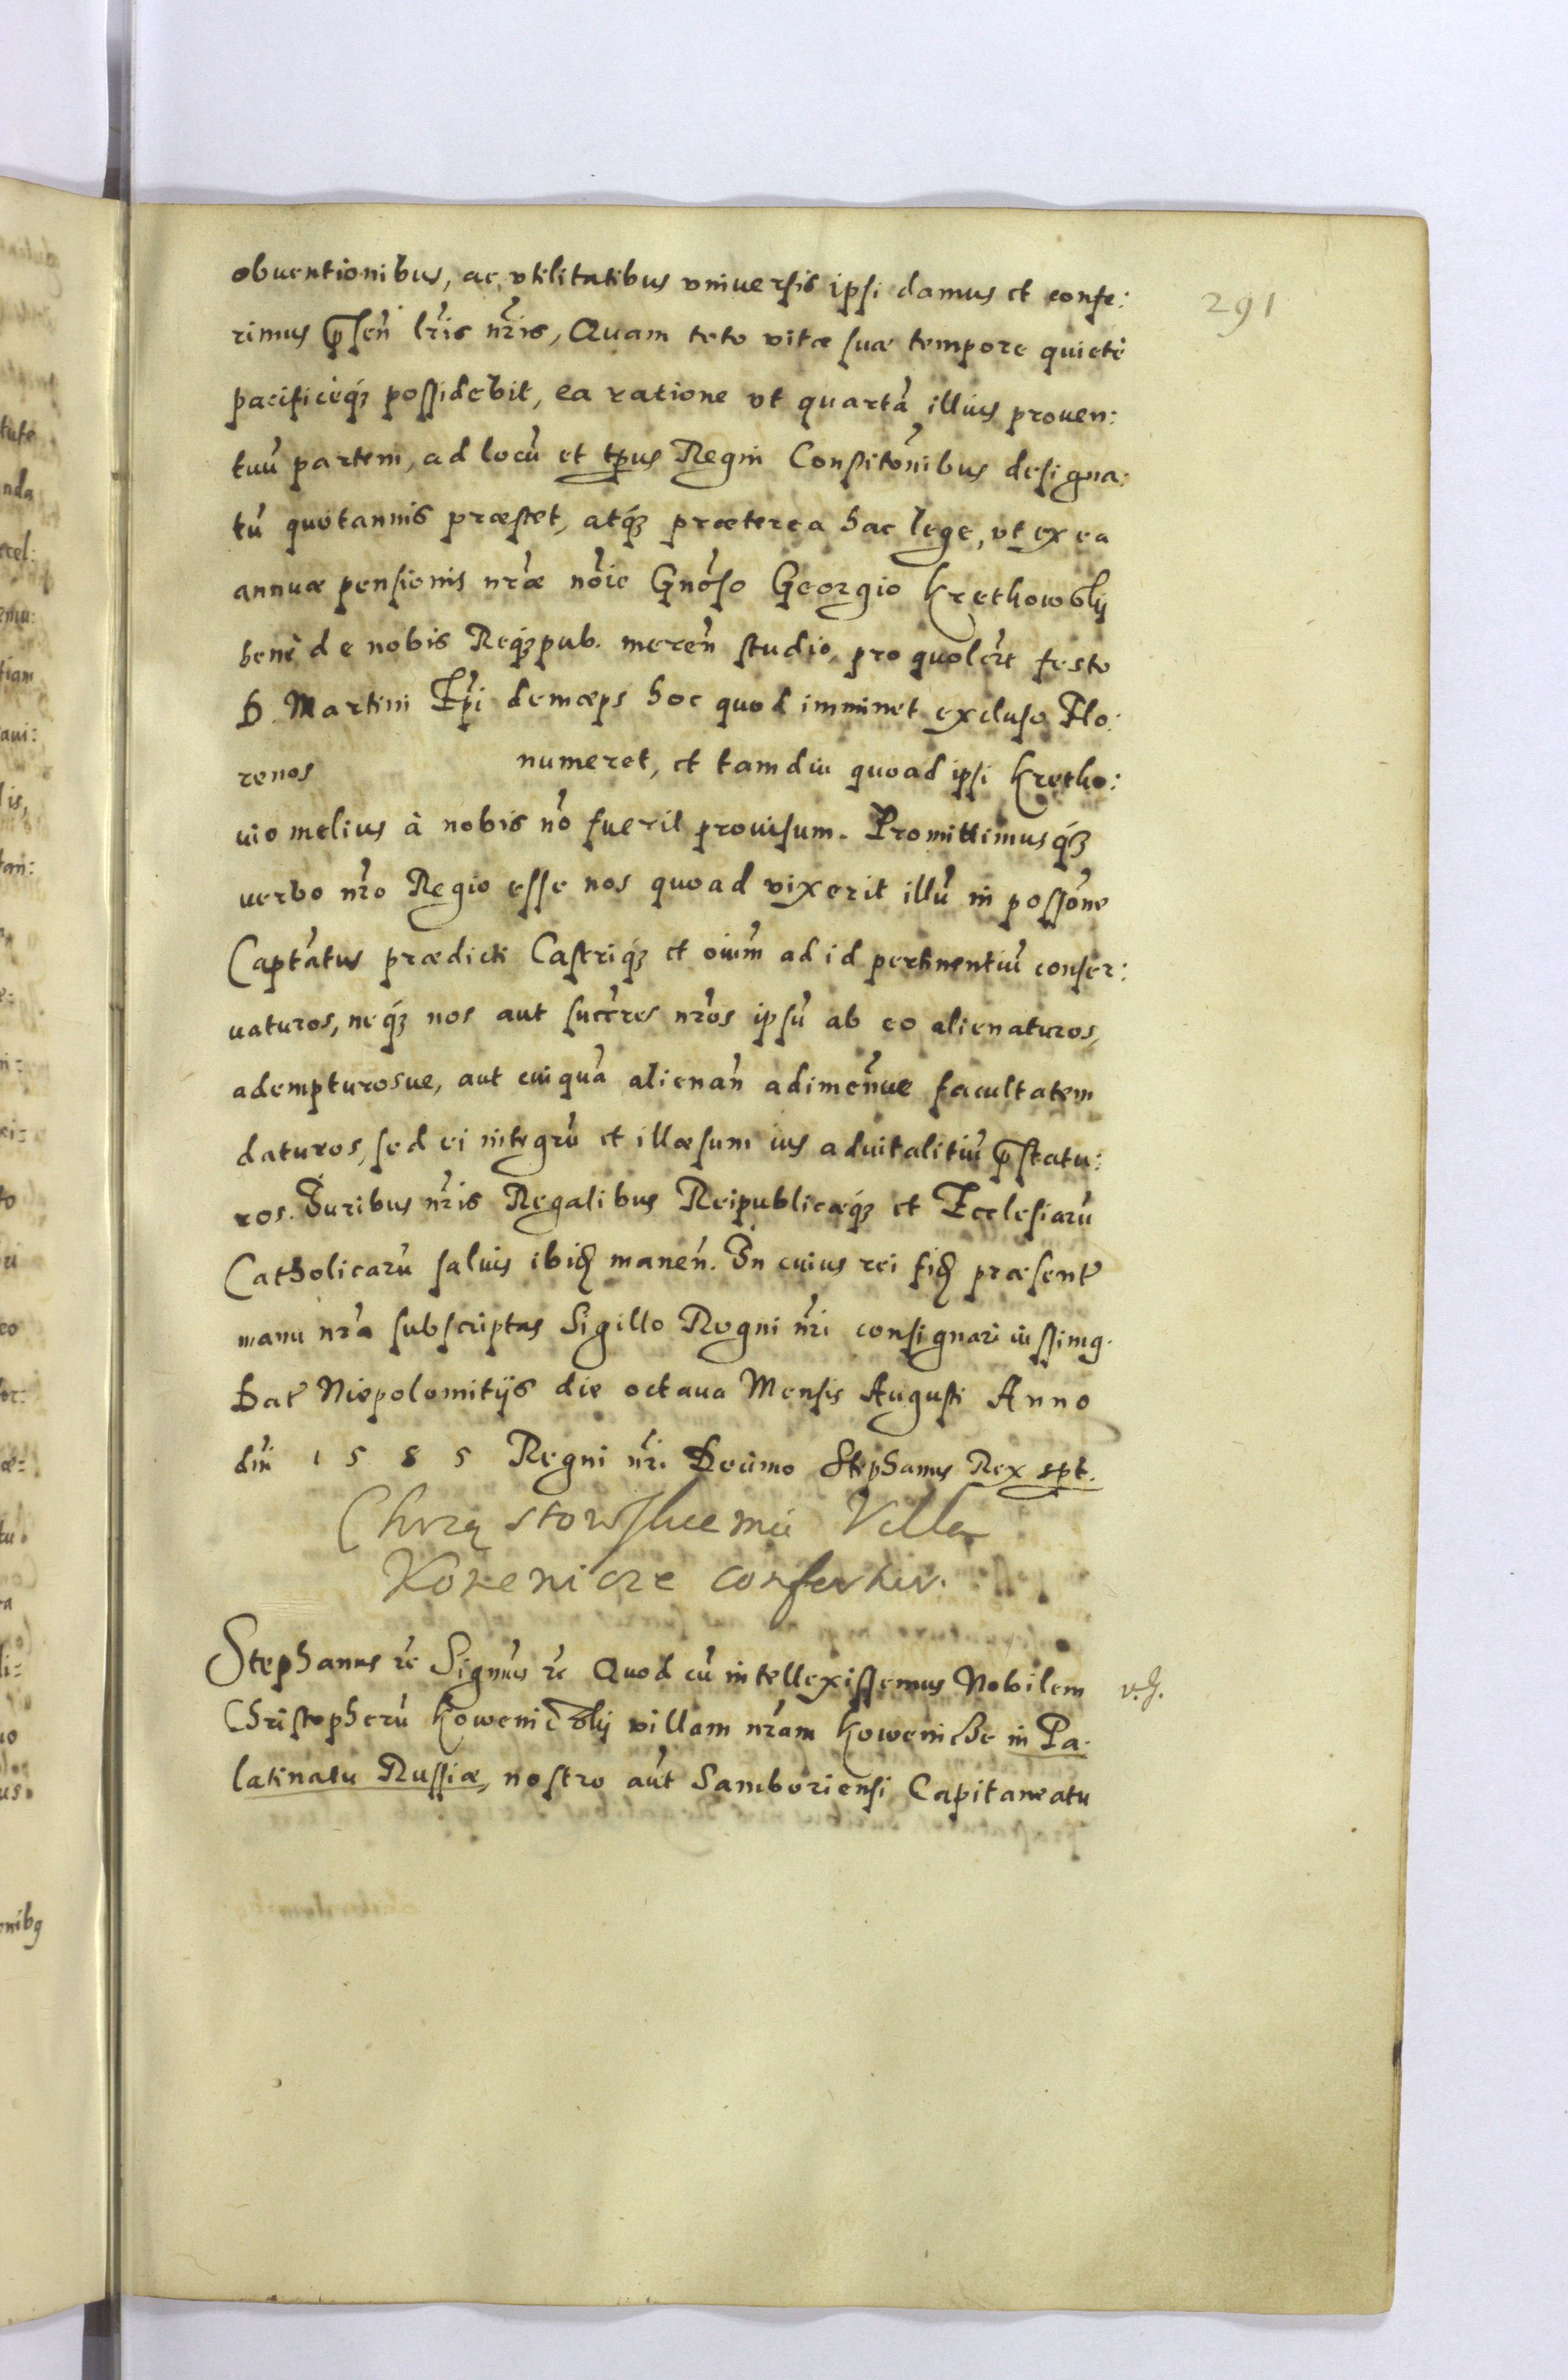 291
obuentionibus, ac vtilitatibus vniuersis ipsi damus et confe:
rimus p̃sen̄ lr̄is nr̄is, Quam toto vitæ suæ tempore quietè
pacificèq́ꝫ possidebit, ea ratione vt quartā illius prouen:
tuū partem, ad locū et tp̄us Regni Constitōnibus designa:
tū quotannis præstet, atq́ꝫ præterea hac lege, vt ex ea
annuæ pensionis nr̄æ nōie Gnōso Georgio Krethowskij
benè de nobis Reiq́ꝫpub. meren̄ studio, pro quolet festo
D. Martini Ep̄i deinceps hoc quod imminet excluso Flo:
renos numeret, et tamdiu quoad ipsi Kretko:
uio melius à nobis nō fuerit prouisum. Promittimusq́ꝫ
verbo nr̄o Regio esse nos quoad vixerit illū in possōne
Captātus prædicti Castriq́ꝫ et oīum ad id pertinentiū conser:
uaturos, neq́ꝫ nos aut succr̄es nr̄os ipsū ab eo alienaturos,
adempturosue, aut cuiquā alienan̄ adimen̄ue facultatem
daturos, sed ei integrū et illæsum ius aduitalitiū p̃statu:
ros. Iuribus nr̄is Regalibus Reipublicæq́ꝫ et Ecclesiarū
Catholicarū saluis ibid manen̄. In cuius rei fid præsent
manu nr̄a subscriptas Sigillo Regni nr̄i consignari iussimꝯ.
Dat Niepolomitijs die octaua Mensis Augusti Anno
dn̄i 1585 Regni nr̄i Decimo Stephanus Rex spt.
Villa
conferter.
Stephanus rc̄ Signūs rc̄ Quod cū intellexissemus Nobilem
v. J.
Christopherū Kowenicskij villam nr̄am Kowenicze in Pa:
latinatu Russiæ, nostro aūt Samboriensi Capitaneatu